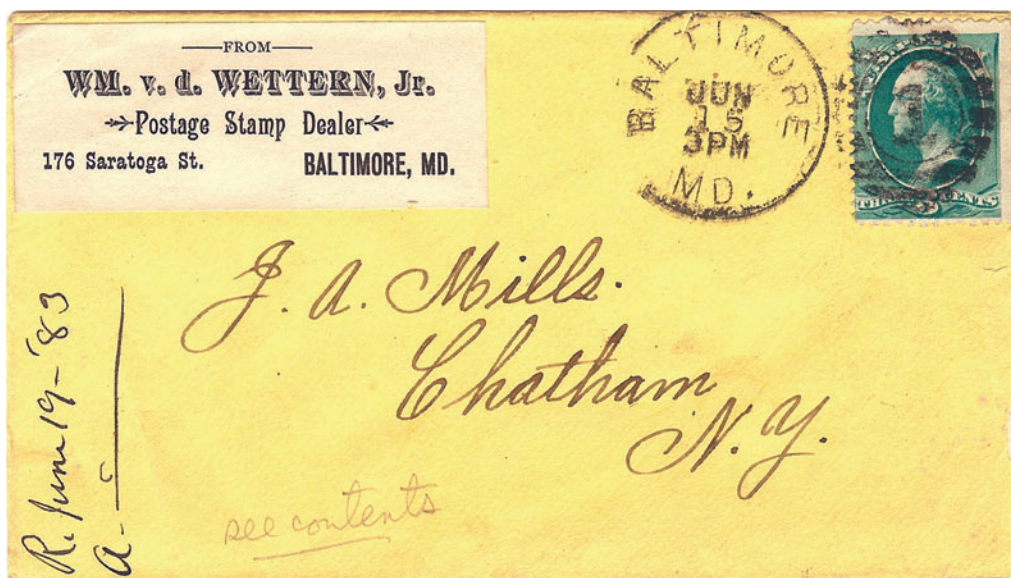 FROM
WM. v. d. WETTERN, Jr.
Postage Stamp Dealer
176 Saratoga St. BALTIMORE, MD.
BALTIMORE
JUN
15
3PM
MD.
CENTS
J. A. Mills.
Chatham
N. Y.
R. June 19-'83
A-
see contents